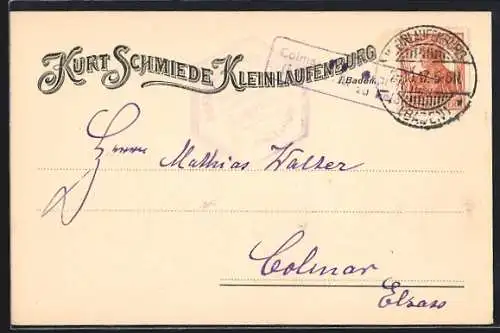 KURT SCHMIEDE KLEINLAUFENBURG
i. Baden.
Colmar
KLEINLAUFENBURG
(BADEN)
Herrn Mathias Walter
Colmar
Elsass